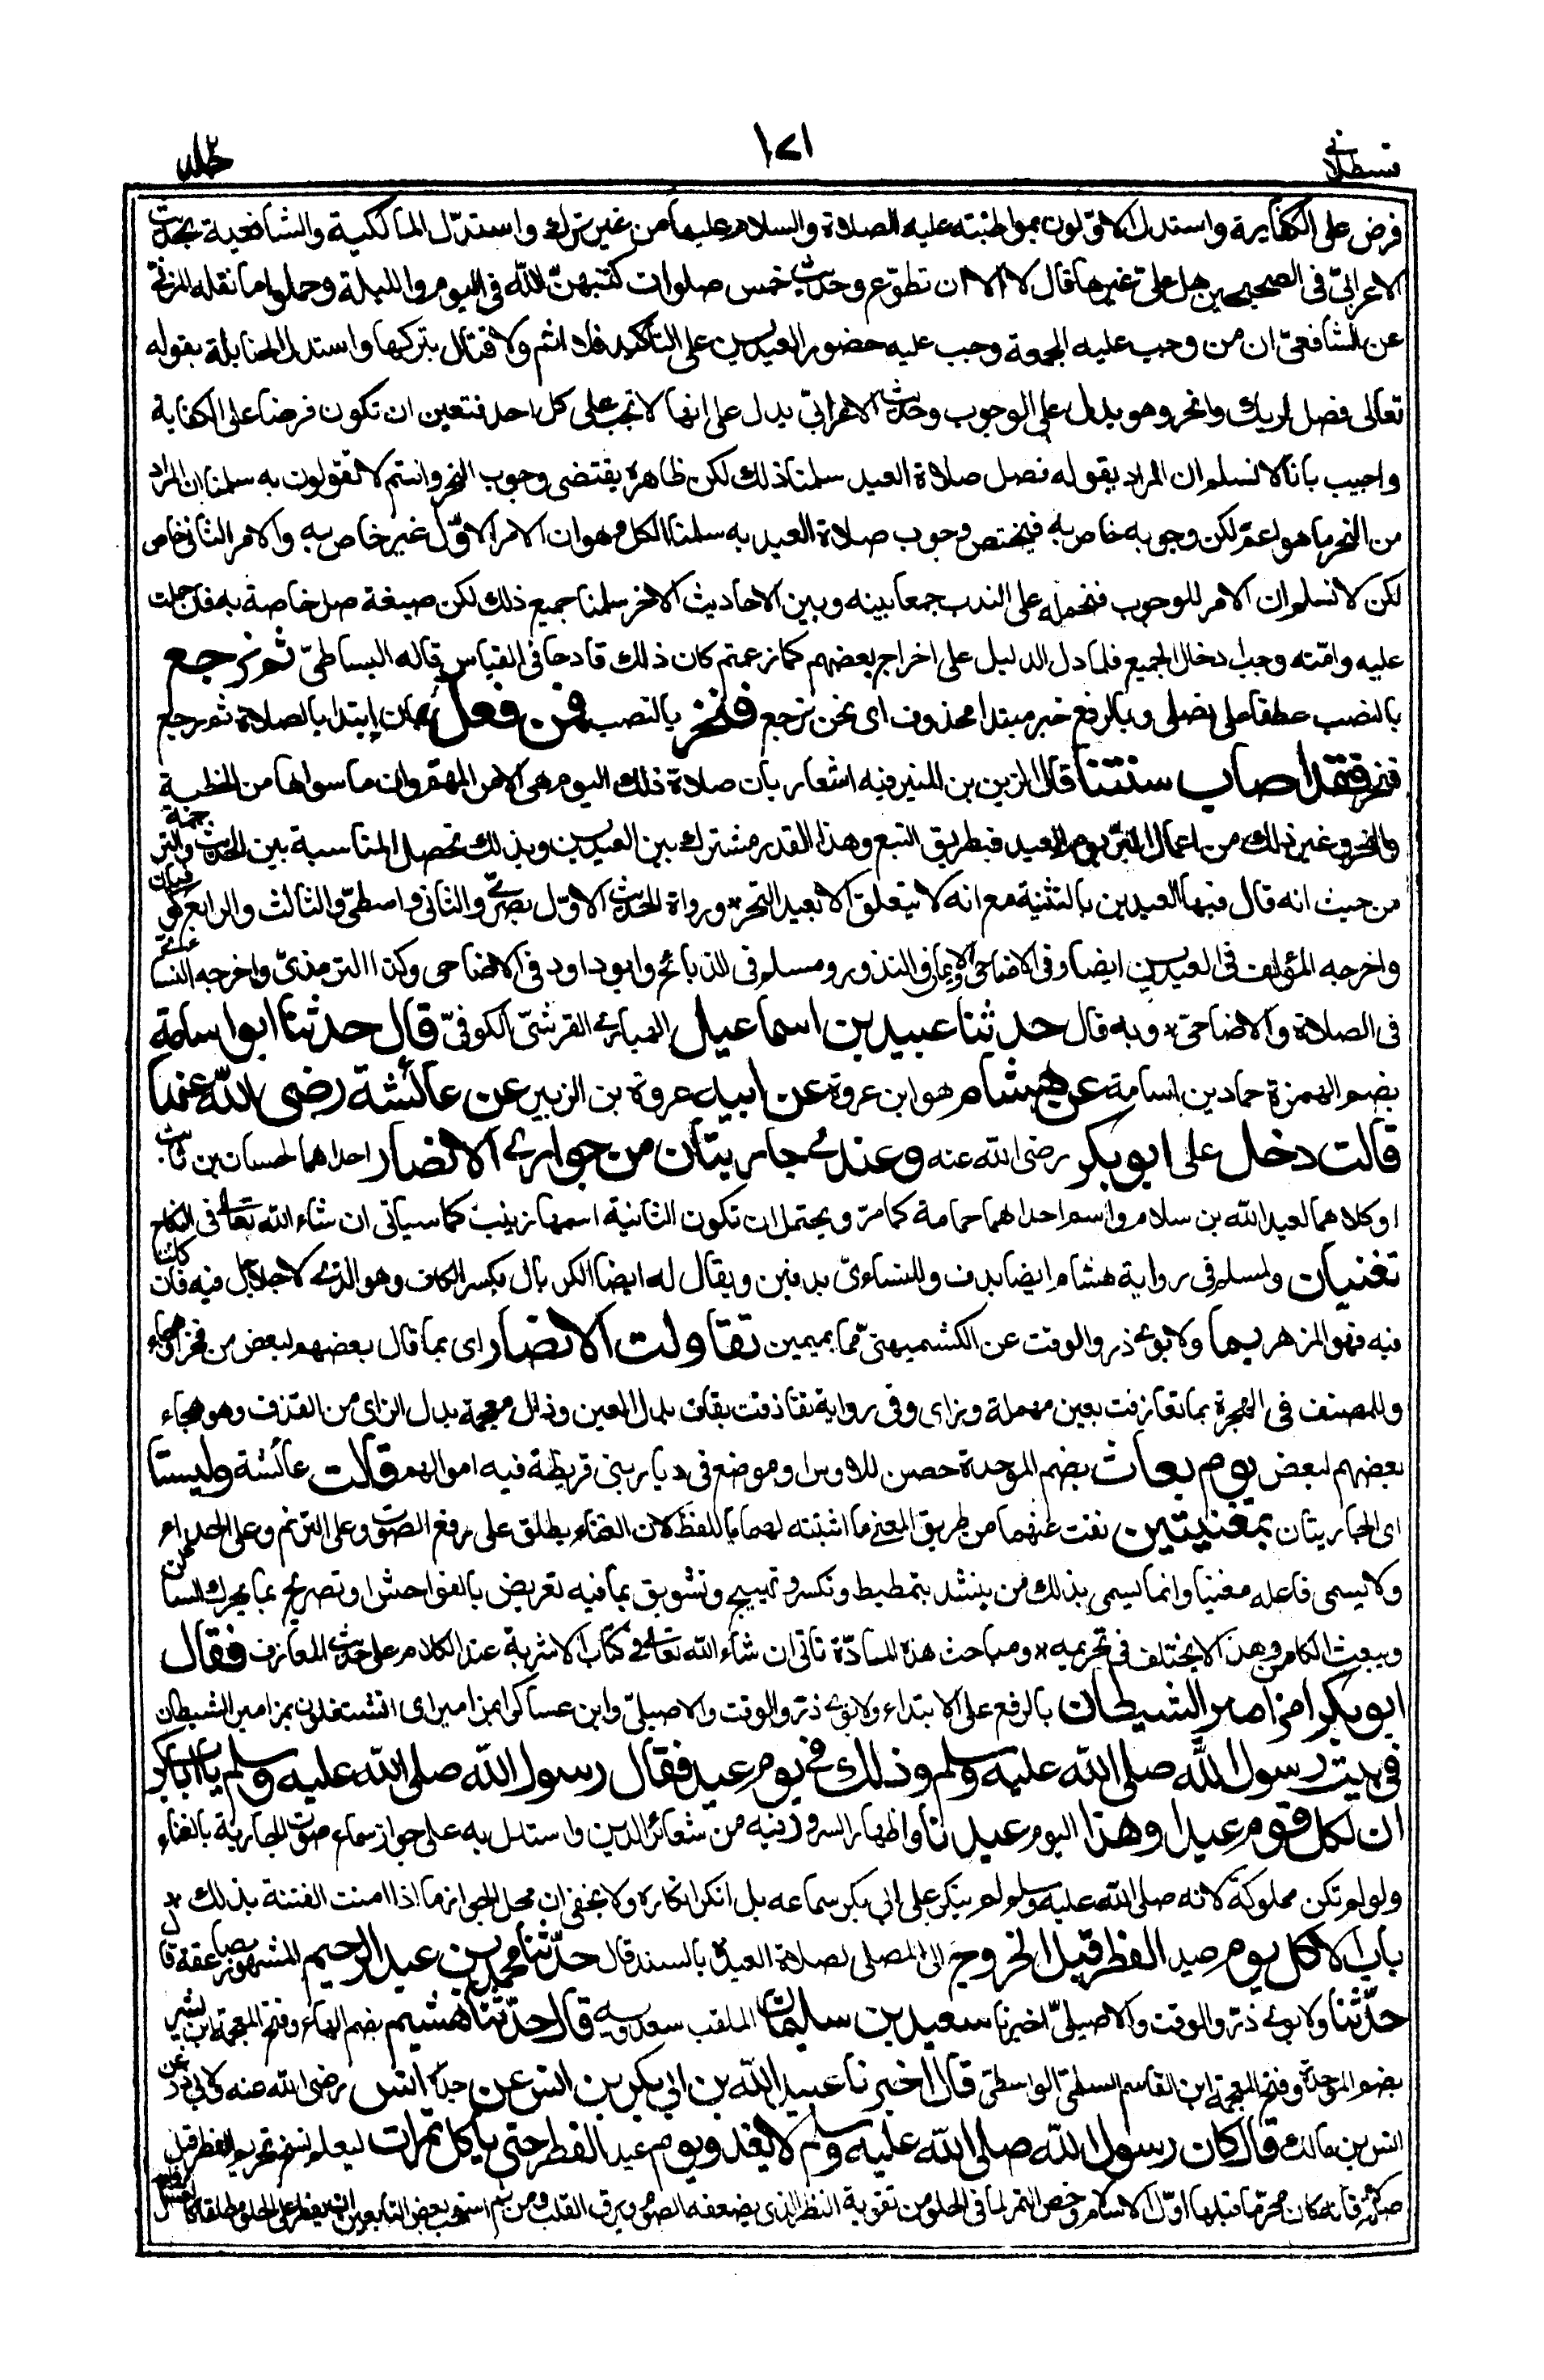 قسطلانی ١٧١ جلد٢
فرض على الكفاية واستدل الاوّلون بمواظبته عليه الصلاة والسلام عليها من غير ترك واستدلّ المالكية والشافعية بحديث
الاعرابيّ فى الصحيحين هل علىّ غيرها قال لا الا ان تطوّع وحديث خمس صلوات كتبهنّ الله فى اليوم والليلة وحملوا ما نقله المزنىّ
عن الشافعىّ ان من وجب عليه الجمعة وجب عليه حضور العيدين على التاكيد فلا اثم ولا قتال بتركها واستدل الحنابلة بقوله
تعالى فصل لربك وانحر وهو يدل على الوجوب وحديث الاعرابىّ يدل على انها لا تجب على كل احد فتعين ان تكون فرضا على الكفاية
واجيب بانا لا نسلم ان المراد بقوله فصل صلاة العيد سلمنا ذلك لكن ظاهره يقتضى وجوب النحر وانتم لا تقولون به سلمنا ان المراد
من النحر ما هو اعمّ لكن وجوبه خاص به فيختص وجوب صلاة العيد به سلمنا الكل وهو ان الامر الاوّل غير خاص به والامر الثانى خاص
لكن لا نسلم ان الامر للوجوب فنحمله على الندب جمعا بينه وبين الاحاديث الاخر سلمنا جميع ذلك لكن صيغة صل خاصة به فان حملت
عليه وامّته وجب ادخال الجميع فلما دل الدليل على اخراج بعضهم كما زعمتم كان ذلك قادحا فى القياس قاله البساطىّ ثم نرجع
بالنصب عطفا على نصلى وبالرفع خبر مبتدا محذوف اى نحن نرجع فننحر بالنصب فمن فعل بان ابتدا بالصلاة ثم رجع
فنحر فقد اصاب سنتنا قال الزين بن المنير فيه اشعار بان صلاة ذلك اليوم هى الامر المهم وان ما سواها من الخطبة
والنحر وغير ذلك من اعمال البرّ يوم العيد فبطريق التبع وهذا القدر مشترك بين العيدين وبذلك تحصل المناسبة بين الحديث والترجمة
من حيث انه قال فيها العيدين بالتثنية مع انه لا يتعلق الا بعيد النحر * ورواة الحديث الاوّل بصرىّ والثانى واسطىّ والثالث والرابع كوفيان
واخرجه المؤلف فى العيدين ايضا وفى الاضاحى والايمان والنذور ومسلم فى الذبائح وابو داود فى الاضاحى وكذا الترمذىّ واخرجه النسا
فى الصلاة والاضاحىّ * وبه قال حدثنا عبيد بن اسماعيل الهباری القرشىّ الكوفىّ قال حدثنا ابو اسامة
بضم الهمزة حماد بن اسامة عن هشام هو ابن عروة عن ابيه عروة بن الزبير عن عائشة رضى الله عنها
قالت دخل على ابو بكر رضى الله عنه وعندى جاريتان من جوارى الانصار احداهما لحسان بن ثابت
او كلاهما لعبد الله بن سلام واسم احداهما حمامة كما مرّ ويحتمل ان تكون الثانية اسمها زينب كما سياتى ان شاء الله تعالى فى النكاح
تغنيان ولمسلم فى رواية هشام ايضا بدف وللنساءىّ بدفين ويقال له ايضا الكربال بكسر الكاف وهو الذى لا جلاجل فيه فان كانت
فيه فهو المزهر بما ولابوى ذر والوقت عن الكشميهنىّ مما بميمين تقاولت الانصار اى بما قال بعضهم لبعض من فخر او هجاء
وللمصنف فى الهجرة بما تعازفت بعين مهملة وزاى وفى رواية تقاذفت بقاف بدل العين وذال معجمة بدل الزاى من القذف وهو هجاء
بعضهم لبعض يوم بعاث بضم الموحدة حصن للاوس او موضع فى ديار بنى قريظة فيه اموالهم قالت عائشة وليستا
اى الجاريتان بمغنيتين نفت عنهما من طريق المعنى ما اثبتته لهما باللفظ لان الغناء يطلق على رفع الصوت وعلى الترنم وعلى الحداء
ولا يسمى فاعله مغنيا وانما يسمى بذلك من ينشد بتمطيط وتكسر وتهييج وتشويق بما فيه تعريض بالفواحش او تصريح بما يحرك الساكن
ويبعث الكامن وهذا لا يختلف فى تحريمه * ومباحث هذه المادّة تاتى ان شاء الله تعالى فى كتاب الاشربة عند الكلام على حديث المعازف فقال
ابو بكر امزامير الشيطان بالرفع على الابتداء ولابوى ذرّ والوقت والاصيلىّ وابن عساكر ابمزامير اى اتشتغلون بمزامير الشيطان
فى بيت رسول الله صلى الله عليه وسلم وذلك فى يوم عيد فقال رسول الله صلى الله عليه وسلم يا ابا بكر
ان لكل قوم عيدا وهذا اليوم عيدنا واظهار السرور فيه من شعائر الدين واستدل به على جواز سماع صوت الجارية بالغناء
ولو لم تكن مملوكة لانه صلى الله عليه وسلم لم ينكر على ابى بكر سماعه بل انكر انكاره ولا يخفى ان محل الجواز ما اذا امنت الفتنة بذلك *
باب الاكل يوم عيد الفطر قبل الخروج الى المصلى لصلاة العيد * بالسند قال حدّثنا محمد بن عبد الرحيم المشهور بصاعقة قال
حدّثنا ولابوى ذرّ والوقت والاصيلىّ اخبرنا سعيد بن سليمان الملقب سعدويه قال حدّثنا هشيم بضم الهاء وفتح المعجمة ابن بشير
بضم الموحدة وفتح المعجمة ابن القاسم السلمىّ الواسطىّ قال اخبرنا عبيد الله بن ابى بكر بن انس عن جدّه انس رضى الله عنه ولابى ذر عن
انس بن مالك قال كان رسول الله صلى الله عليه وسلم لا يغدو يوم عيد الفطر حتى ياكل تمرات ليعلم نسخ تحريم الفطر قبل
صلاته فانه كان محرّما قبلها اوّل الاسلام وخص التمر لما فى الحلو من تقوية النظر الذى يضعفه الصوم ويرق القلب ومن ثم استحب بعض التابعين ان يفطر على الحلو مطلقا كالعسل